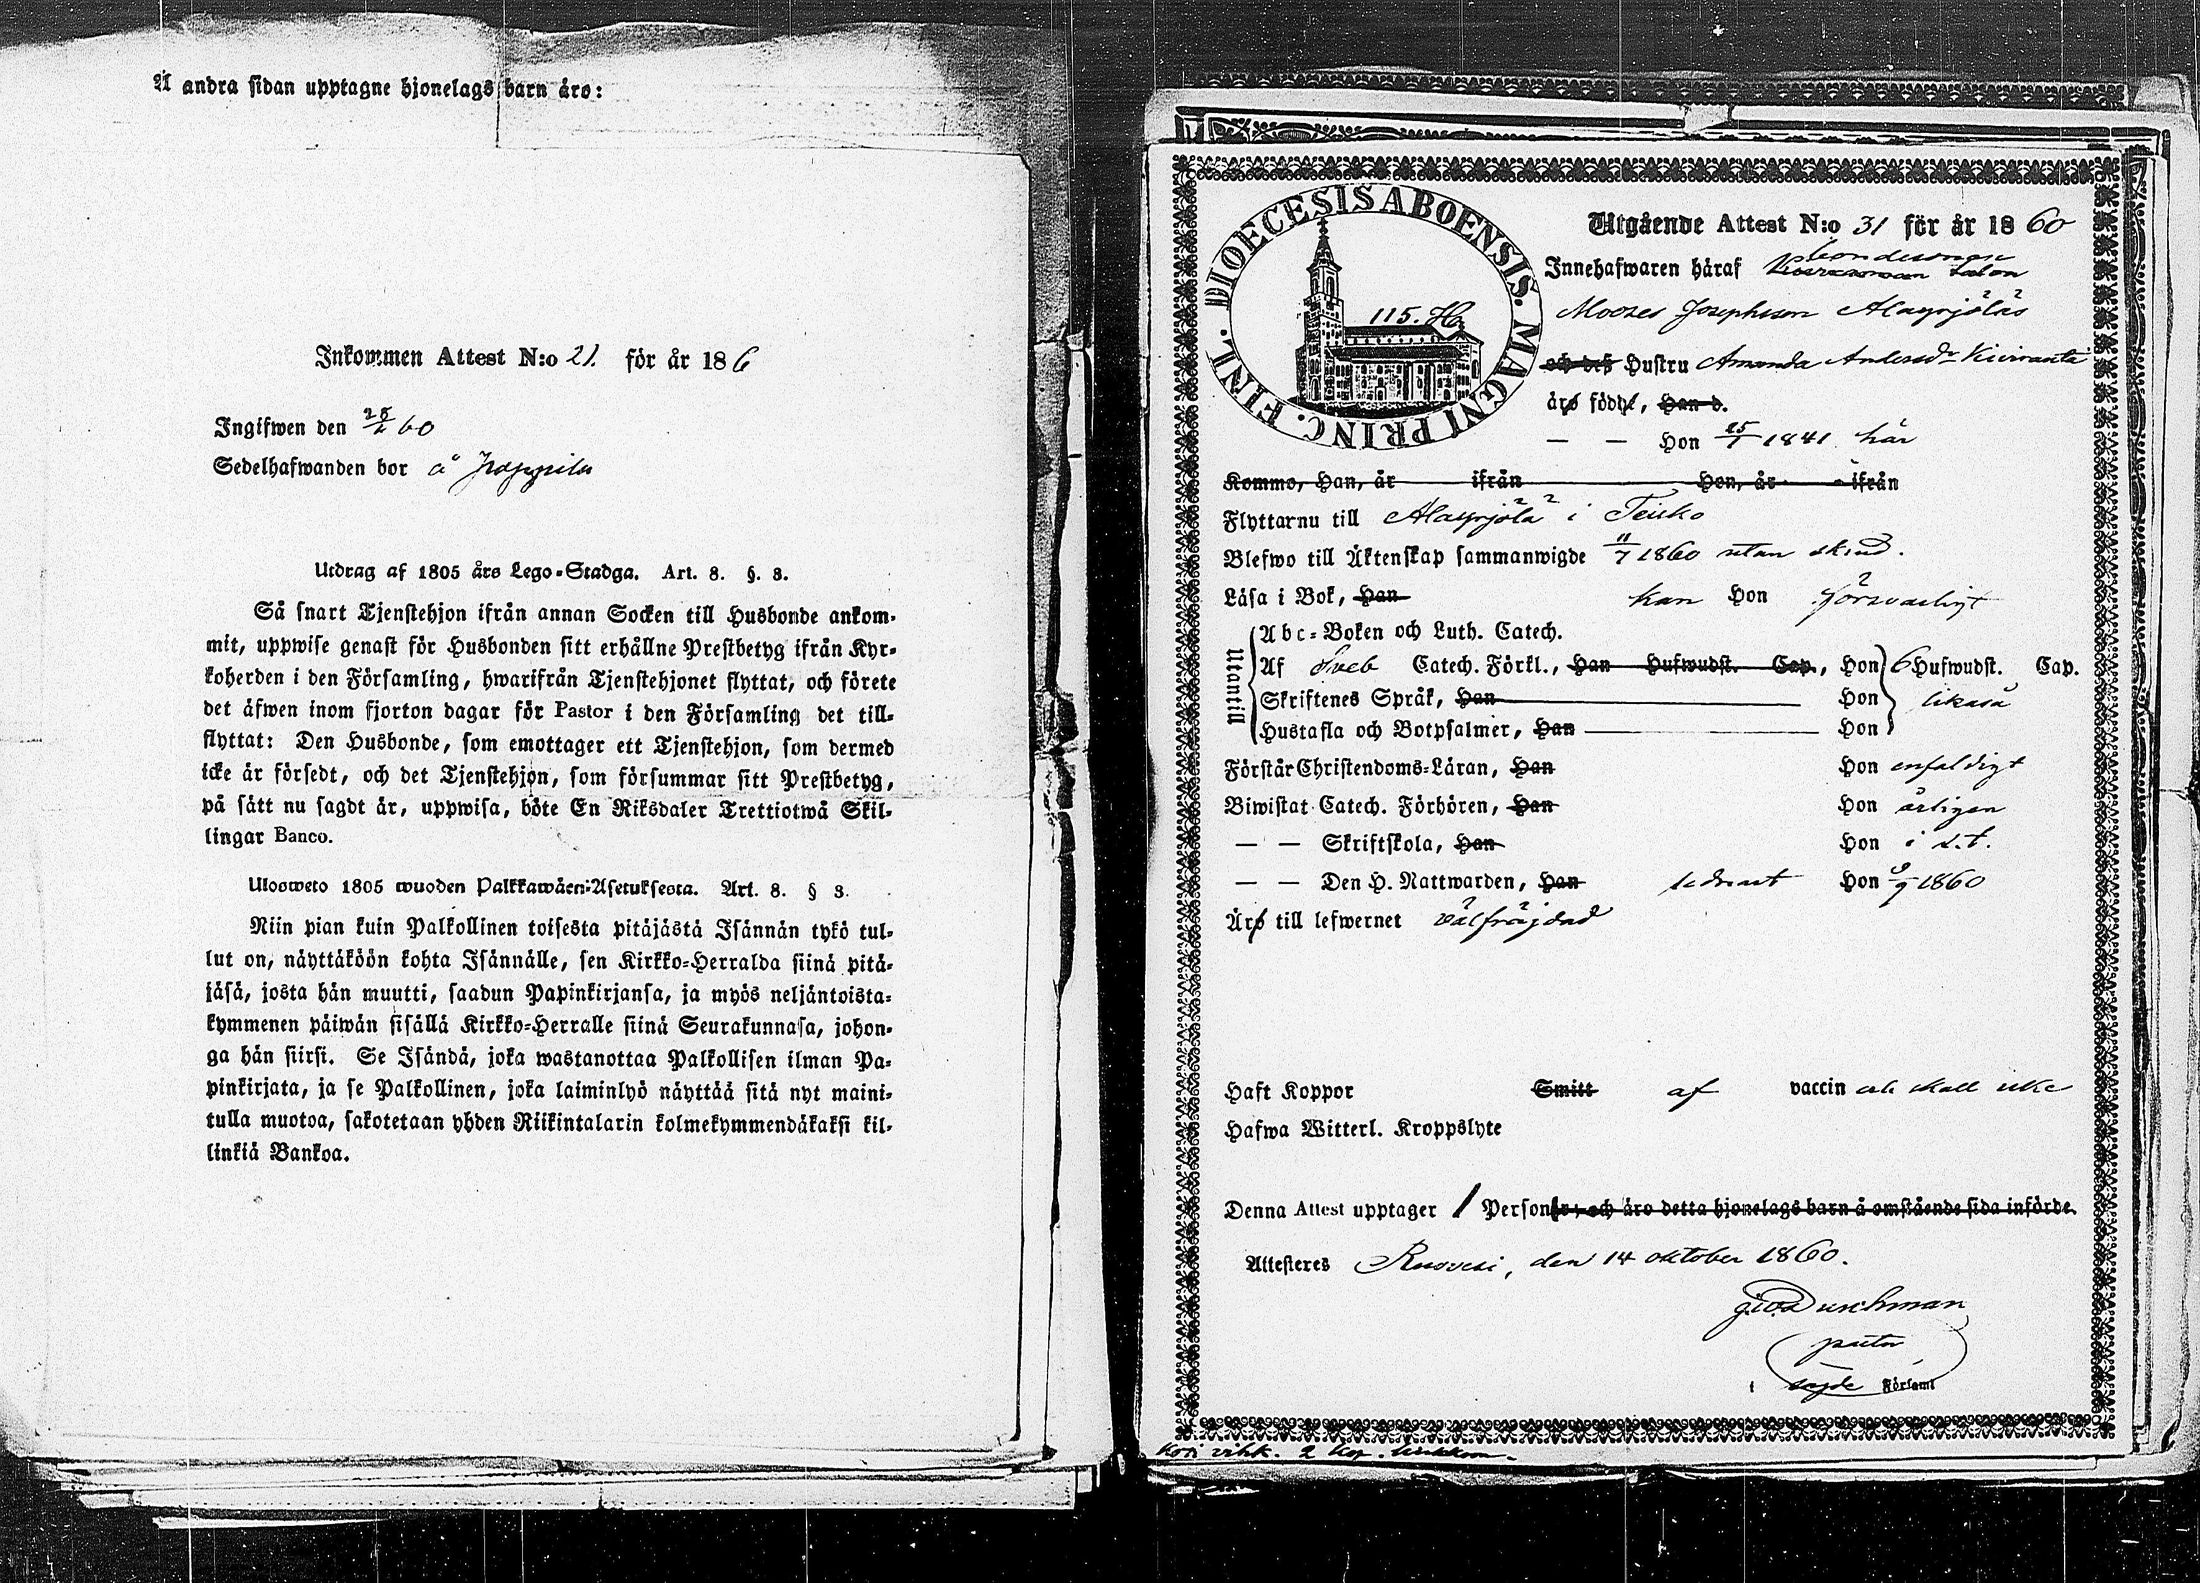 Å andra sidan upptagne hjonelags barn äro:
Inkommen Attest N:o 21. för år 186
Ingifwen den 60
Sedelhafwanden bor å
Utdrag af 1805 års Lego-Stadga. Art. 8. §. 3.
Så snart Tjenstehjon ifrån annan Socken till Husbonde ankom-
mit, uppwise genast för Husbonden sitt erhållne Prestbetyg ifrån Kyr-
koherden i den Församling, hwarifrån Tjenstehjonet flyttat, och förete
det äfwen inom fjorton dagar för Pastor i den Församling det till-
flyttat: Den Husbonde, som emottager ett Tjenstehjon, som dermed
icke är försedt, och det Tjenstehjon, som försummar sitt Prestbetyg,
på sätt nu sagdt är, uppwisa, böte En Riksdaler Trettiotwå Skil-
lingar Banco.
Ulosweto 1805 wuoden Palkkawäen-Asetuksesta. Art. 8. § 3.
Niin pian kuin Palkollinen toisesta pitäjästä Isännän tykö tul-
lut on, näyttäköön kohta Isännälle, sen Kirkko-Herralda siinä pitä-
jäsä, josta hän muutti, saadun Papinkirjansa, ja myös neljäntoista-
kymmenen päiwän sisällä Kirkko-Herralle siinä Seurakunnasa, johon-
ga hän siirsi. Se Isändä, joka wastanottaa Palkollisen ilman Pa-
pinkirjata, ja se Palkollinen, joka laiminlyö näyttää sitä nyt maini-
tulla muotoa, sakotetaan yhden Riikintalarin kolmekymmendäkaksi kil-
linkiä Bankoa.
DIOECESIS ABOENSIS. MAGNI PRINC. FINL.
115.
Utgående Attest N:o 31 för år 1860
Innehafwaren häraf bondesonen
Mooses Josephsson Alayrjölas
och deß Hustru Amanda Andersdr Kiviranta
äro födde, Han d.
— — Hon 25/1 1841 här
Kommo, Han, år ifrån Hon, år ifrån
Flyttarnu till Alayrjölä i Teisko
Blefwo till Äktenskap sammanwigde 11/7 1860 utan skind.
Läsa i Bok, Han kan Hon försvarligt
Utantill
Abc-Boken och Luth. Catech.
Af Sveb Catech. Förkl., Han Hufwudst. Cap., Hon 6 Hufwudst. Cap.
Skriftenes Språk, Han Hon likaså
Hustafla och Botpsalmer, Han Hon
Förstår Christendoms-Läran, Han Hon enfaldigt
Biwistat Catech. Förhören, Han Hon årligen
— — Skriftskola, Han Hon i s.t.
— — Den H. Nattwarden, Han sednast Hon 9/9 1860
Äro till lefwernet välfräjdad
Haft Koppor Smitt af vaccin
Hafwa Witterl. Kroppslyte
Denna Attest upptager 1 Personer, och äro detta hjonelags barn å omstående sida införde.
Attesteres Ruovesi, den 14 oktober 1860.
pastor
i Församl